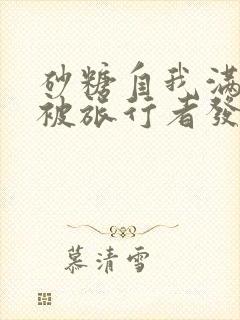 砂糖自我滿
被旅行者發
慕清雪